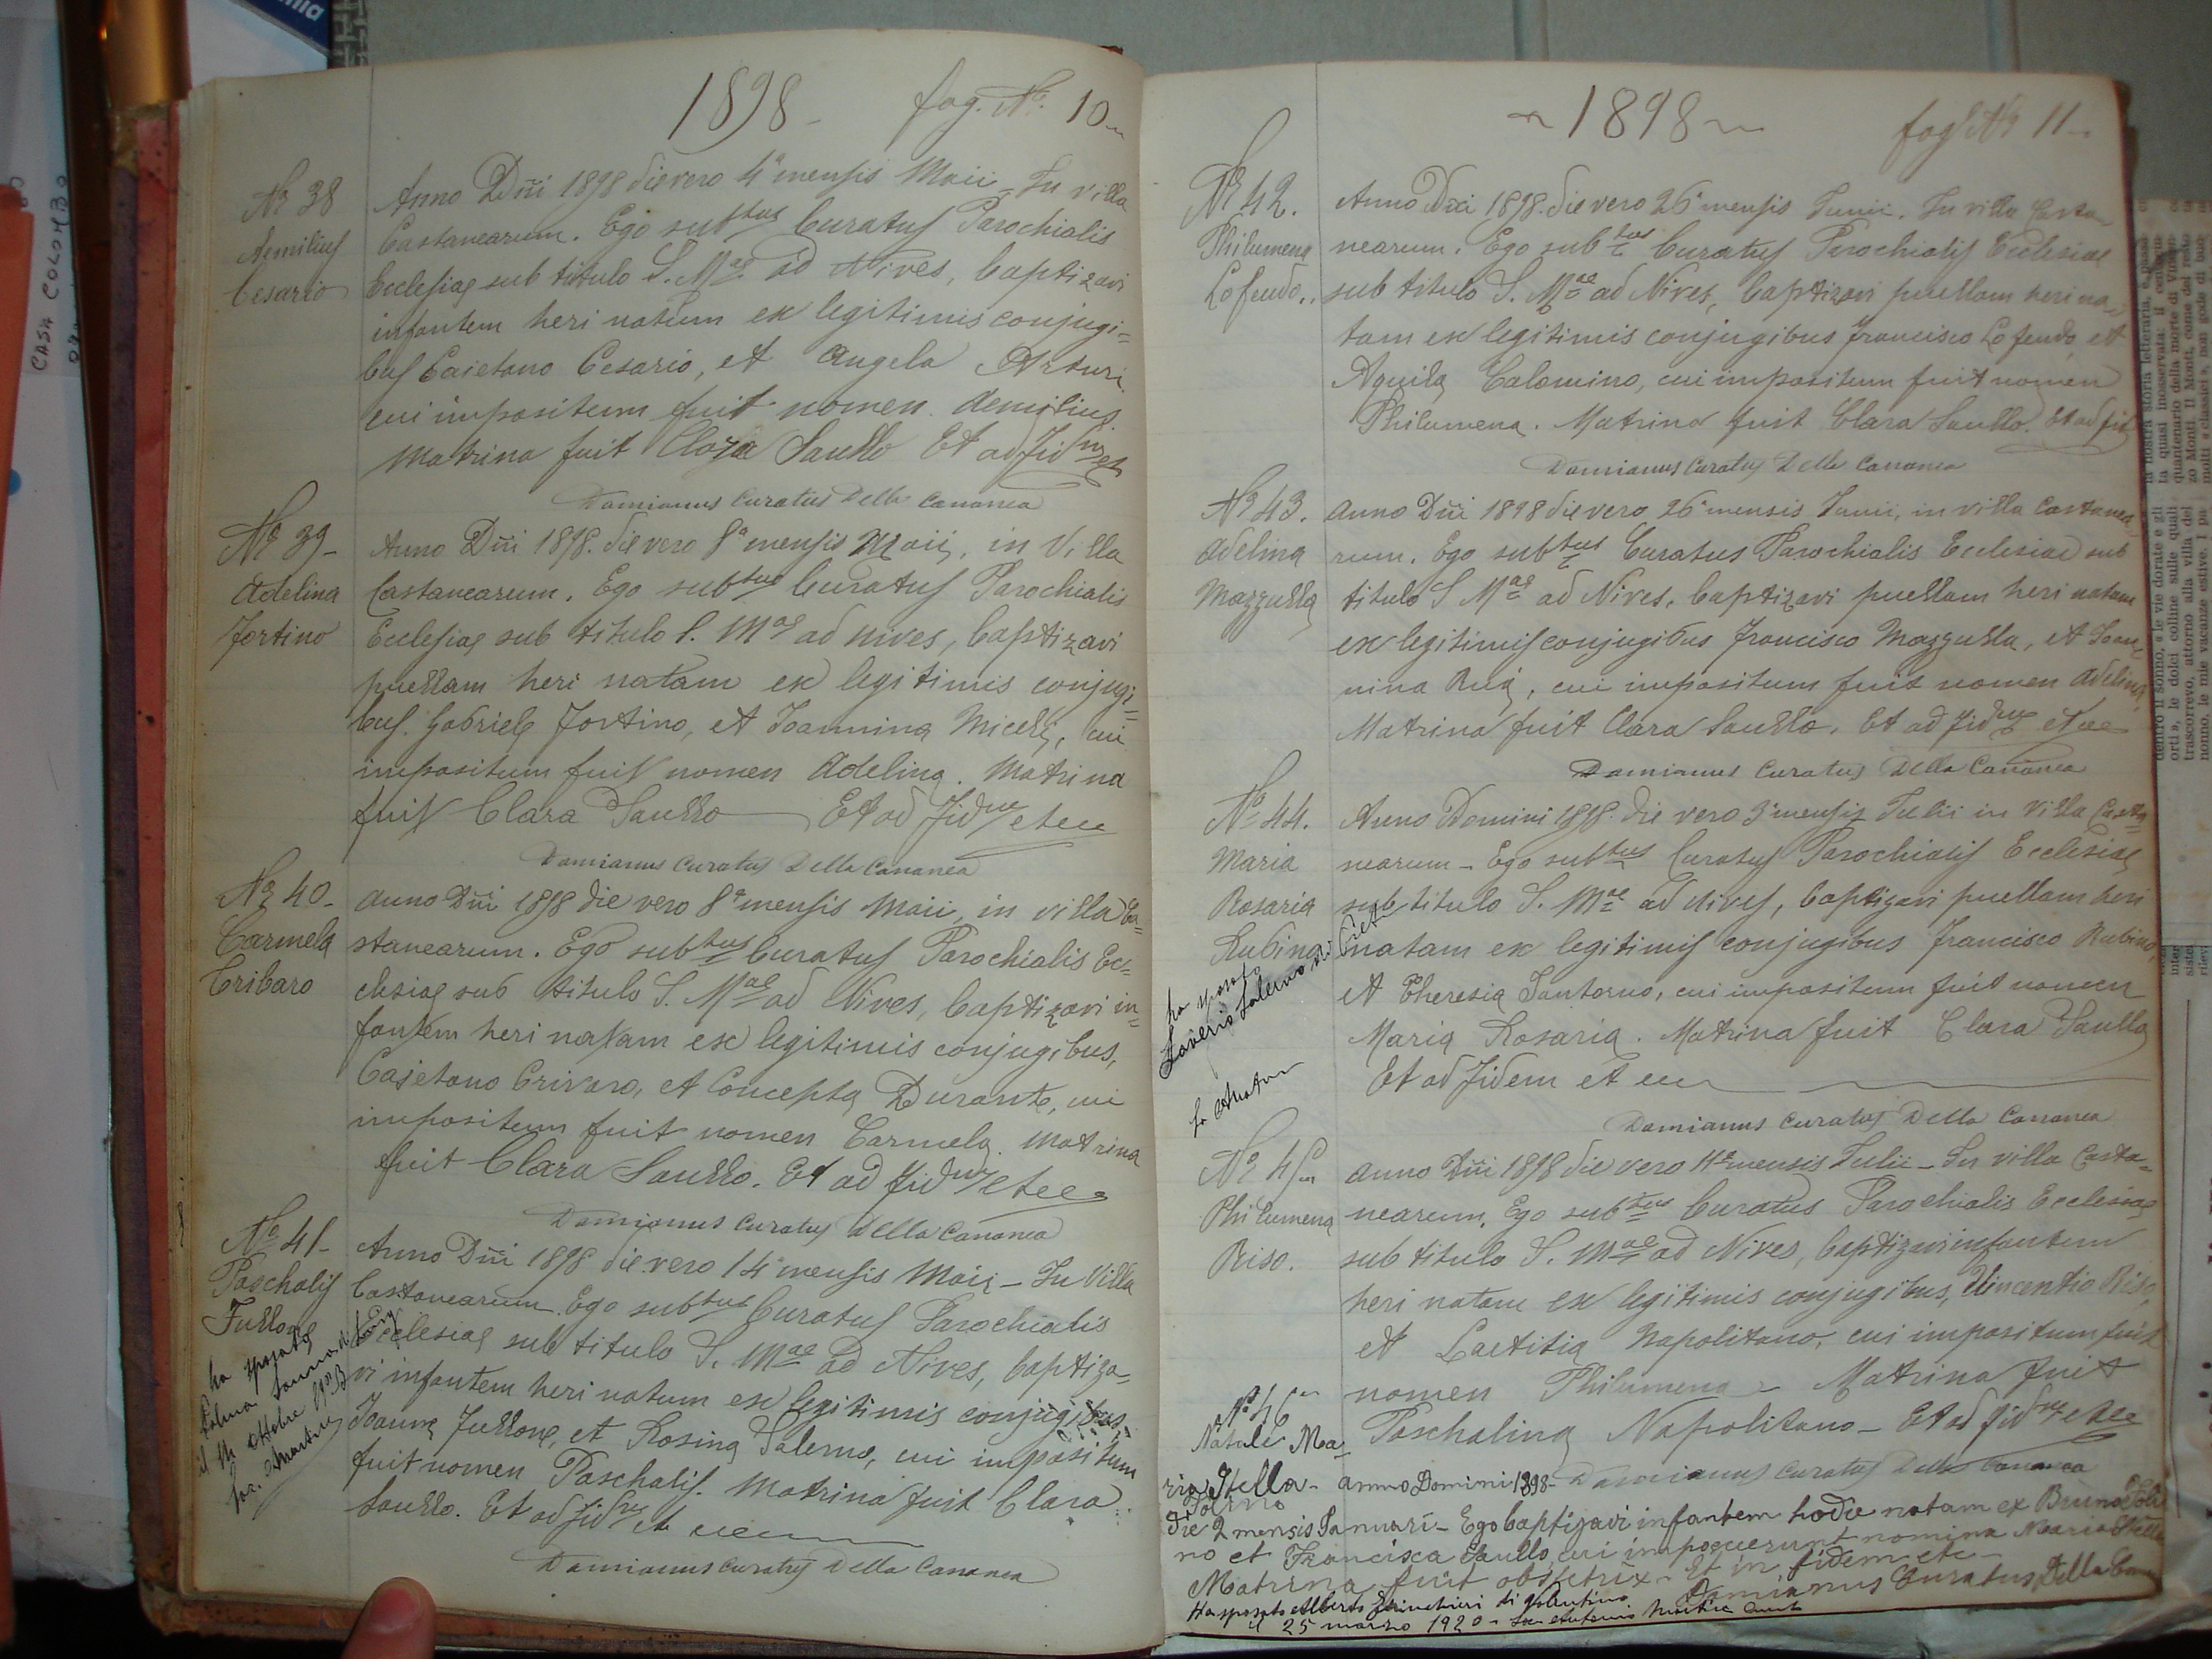 1898 fog. No. 10
No 38
Aemilius
Cesario
Anno Dñi 1898 die vero 4a mensis Maii - In villa
Castanearum. Ego subtus Curatus Parochialis
Ecclesiae sub titulo S. Mae ad Nives, baptizavi
infantem heri natum ex legitimis conjugi=
bus Caietano Cesario, et Angela Arturi
cui impositum fuit nomen Aemilius
Matrina fuit Clara Saullo Et ad fid
Damianus Curatus Della Cananea
No 39-
Adelina
Fortino
Anno Dñi 1898. die vero 8a mensis Maii, in Villa
Castanearum. Ego subtus Curatus Parochialis
Ecclesiae sub titulo S. Mae ad nives, baptizavi
puellam heri natam ex legitimis conjugi=
bus. Gabriele Fortino, et Joannina Miceli, cui
impositum fuit nomen Adelina. Matrina
fuit Clara Saullo Et ad Fidm etcc
Damianus Curatus Della Cananea
No 40-
Carmela
Cribaro
Anno Dñi 1898 die vero 8a mensis Maii, in villa Ca=
stanearum. Ego subtus Curatus Parochialis Ec=
clesiae sub titulo S. Mae ad Nives, baptizavi in=
fantem heri natam ex legitimis conjugibus,
Cajetano Crivaro, et Concepta Durante, cui
impositum fuit nomen Carmela. Matrina
fuit Clara Saullo. Et ad fidm etcc
Damianus Curatus Della Cananea
No 41-
Paschalis
Fullone
ha sposato
il Ottobre
Anno Dñi 1898 die vero 14 mensis Maii - In Villa
Castanearum. Ego subtus Curatus Parochialis
Ecclesiae sub titulo S. Mae ad Nives, baptiza=
vi infantem heri natum ex legitimis conjugibus,
Joanne Fullone, et Rosina Salerno, cui impositum
fuit nomen Paschalis. Matrina fuit Clara
Saullo. Et ad fidm et
Damianus Curatus Della Cananea
1898 fogl No 11
No 42.
Philumena
Lofeudo.
Anno Dni 1898. die vero 26 mensis Junii. In villa Casta=
nearum. Ego subtus Curatus Parochialis Ecclesiae
sub titulo S. Mae ad Nives, baptizavi puellam heri na=
tam ex legitimis conjugibus Francisco Lofeudo, et
Aquila Calomino, cui impositum fuit nomen
Philumena. Matrina fuit Clara Saullo. Et ad fid
Damianus Curatus Della Cananea
No 43.
Adelina
Mazzulla
Anno Dñi 1898 die vero 26 mensis Junii, in villa Castanea=
rum. Ego subtus Curatus Parochialis Ecclesiae sub
titulo S Mae ad Nives, baptizavi puellam heri natam
ex legitimis conjugibus Francisco Mazzulla, et Joan=
nina Ruq, cui impositum fuit nomen Adelina
Matrina fuit Clara Saullo. Et ad fidm etcc
Damianus Curatus Della Cananea
No 44.
Maria
Rosaria
Rubino
ha sposato
Saverio Salerno di
Anno Domini 1898. die vero 3a mensis Julii in Villa Casta=
nearum - Ego subtus Curatus Parochialis Ecclesiae
sub titulo S. Mae ad Nives, baptizavi puellam heri
natam ex legitimis conjugibus Francisco Rubino,
et Theresia Santoruo, cui impositum fuit nomen
Maria Rosaria. Matrina fuit Clara Saullo
Et ad fidem et
Damianus Curatus Della Cananea
No 45
Philumena
Riso.
Anno Dñi 1898 die vero 11a mensis Julii - In villa Casta=
nearum. Ego subtus Curatus Parochialis Ecclesiae
sub titulo S. Mae ad Nives, baptizavi infantem
heri natam ex legitimis conjugibus, Vincentio Riso,
et Laetitia Napolitano, cui impositum fuit
nomen Philumena - Matrina fuit
Paschalina Napolitano - Et ad fidm etcc
Damianus Curatus Della Cananea
No 46
Natale Ma=
ria Stella - Anno Domini 1898-
die 2 mensis Januari - Ego baptizavi infantem hodie natam ex Bruno
no et Francisca Saullo, cui imposuerunt nomina Maria Stella
Matrina fuit obstetrix - Et in fidem etc -
Damianus Curatus Della Can
Ha sposato Alberto di
il 25 marzo 1920 -
CASA COLOMBO